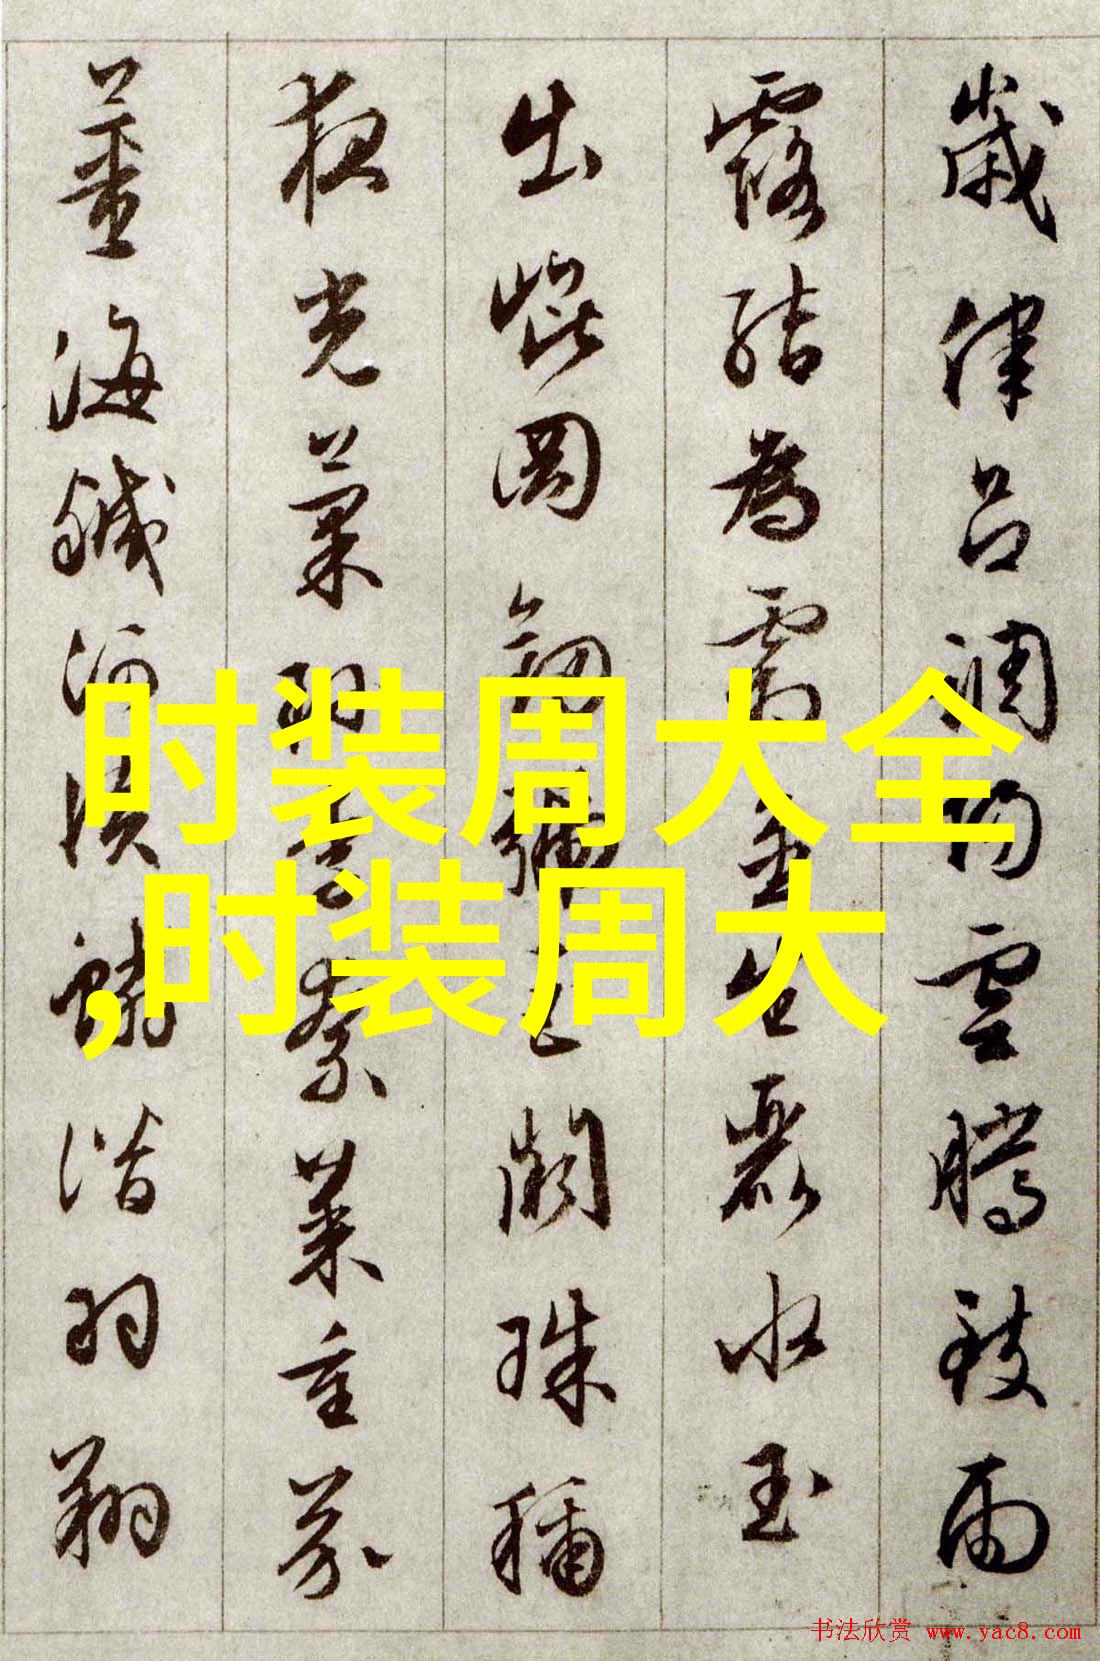 歲律呂調陽雲騰致雨
露結為霜金生麗水玉
出崐岡劒號巨闕珠稱
夜光菓珎李柰菜重芥
薑海鹹河淡鱗潛羽翔
时装周大全
,时装周大
书法欣赏 www.yac8.com